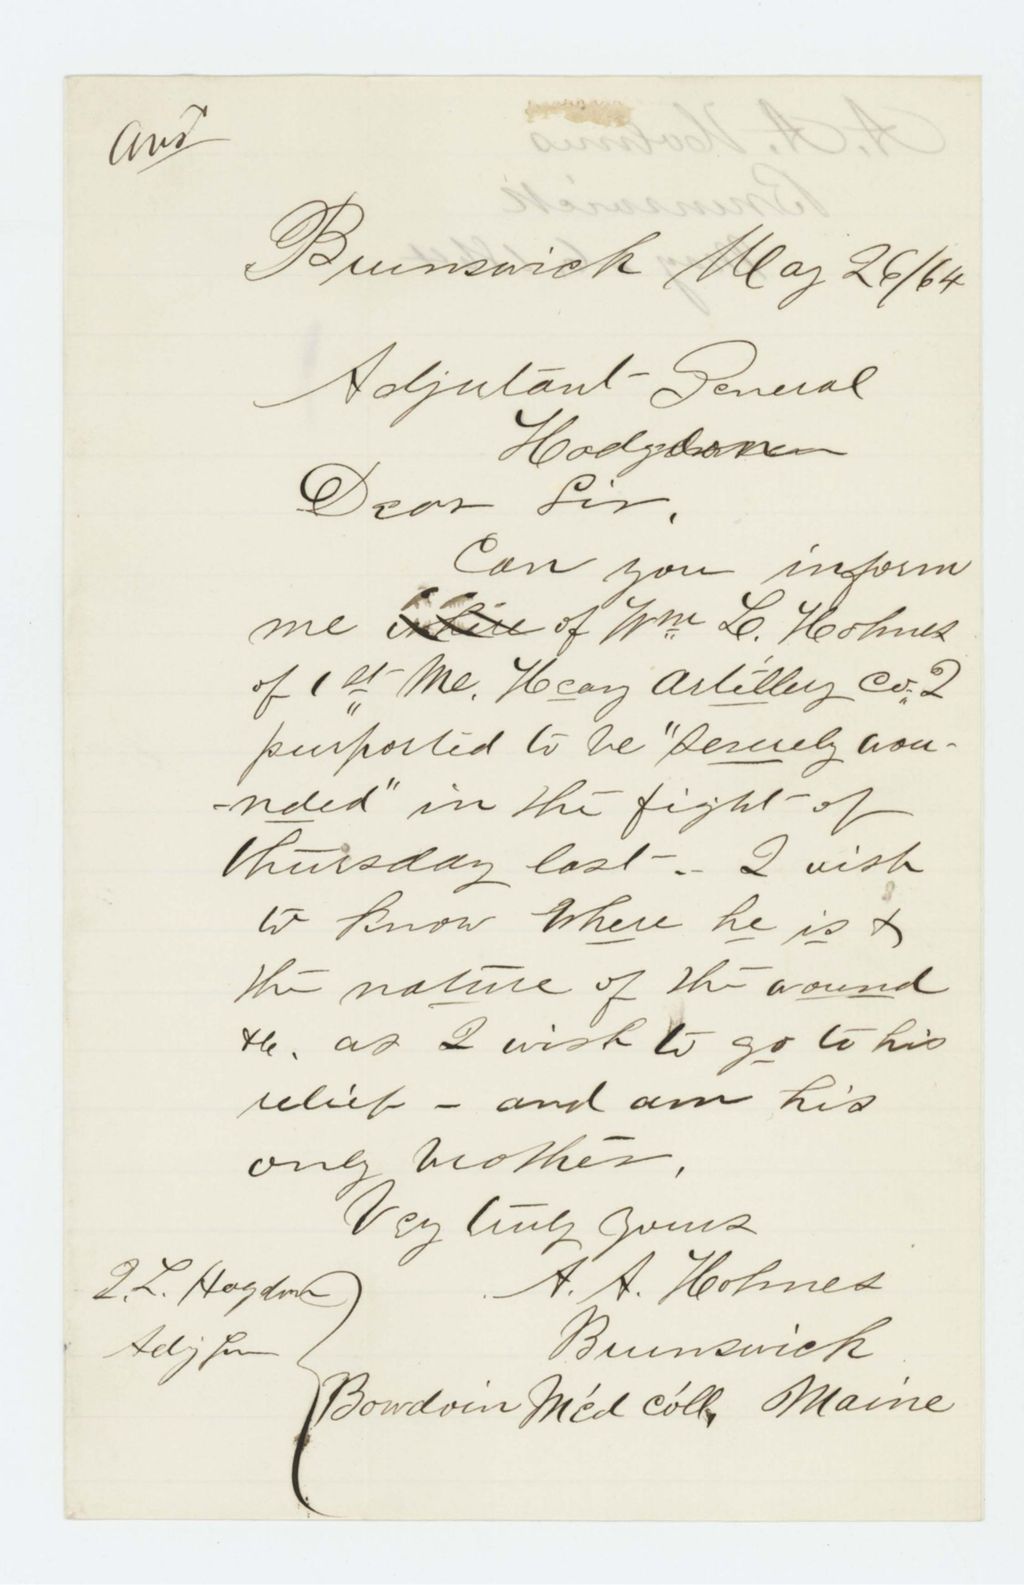 Ansd
Brunswick May 26/64
Adjutant General
Hodgdon
Dear Sir,
Can you inform
me where of Wm L. Holmes
of 1st Me. Heavy Artillery Co. I
purported to be "severely wou-
-nded" in the fight of
thursday last -. I wish
to know where he is &
the nature of the wound
&c. as I wish to go to his
relief - and am his
only brother,
Very truly yours
A. A. Holmes
Brunswick
Bowdoin Med coll, Maine
J. L. Hogdon
Adj Gen